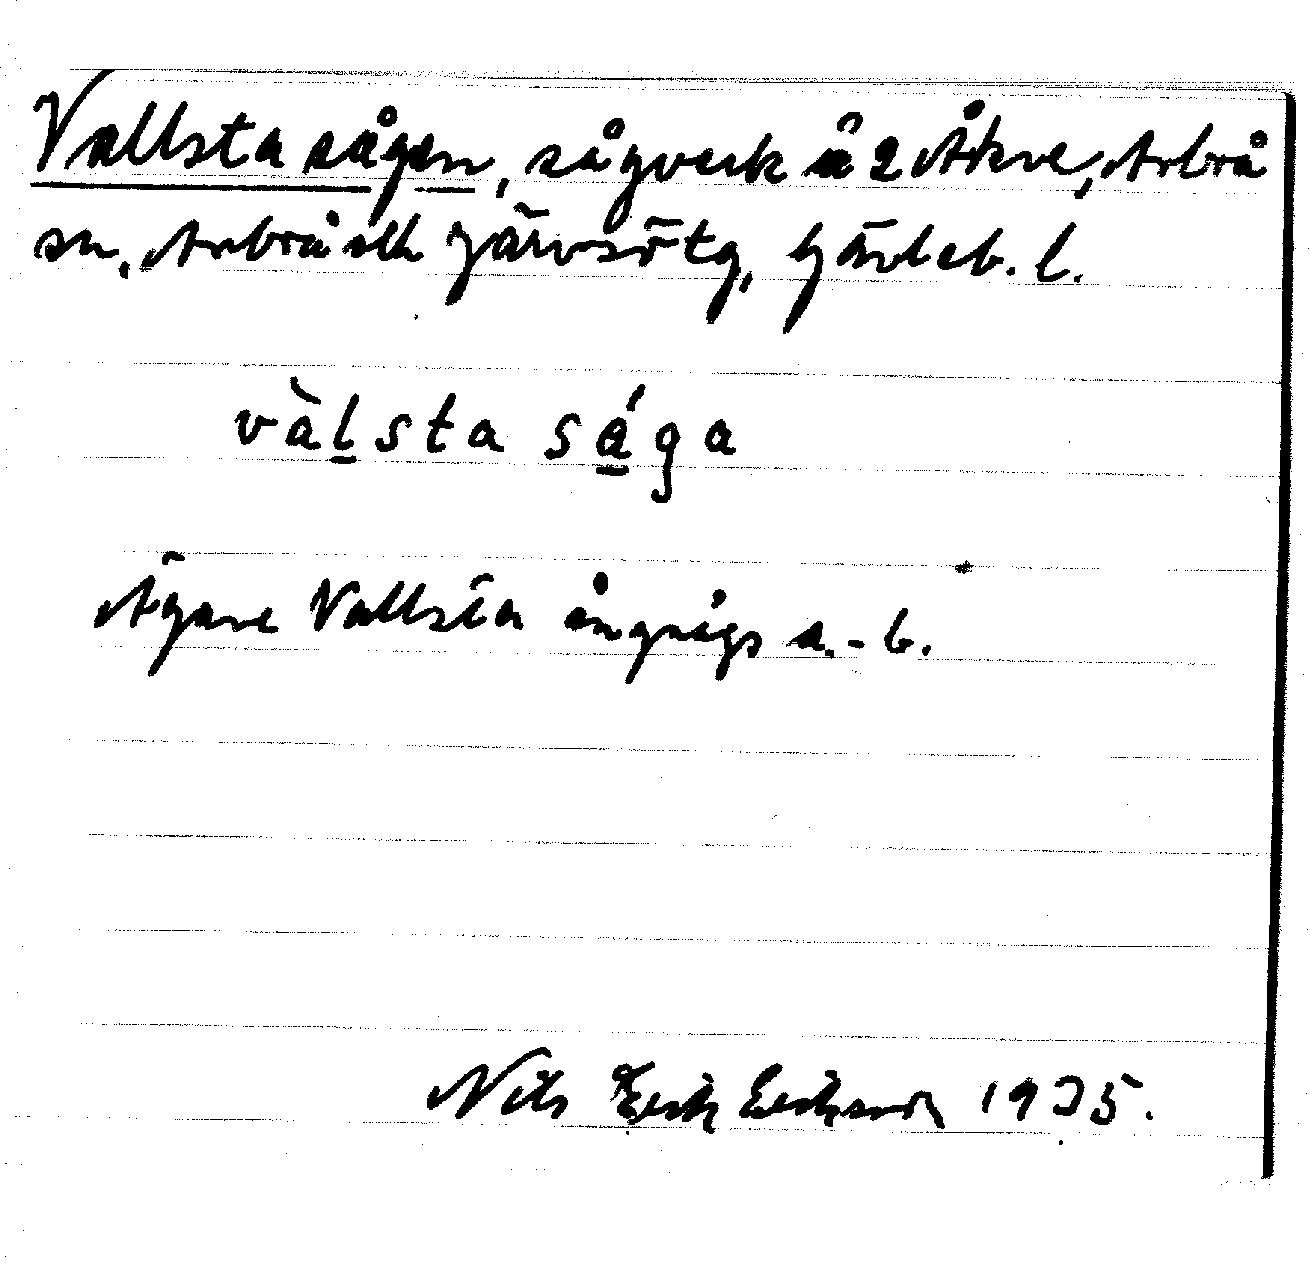 Vallsta sågen, sågverk å 2 Åkre, Arbrå
sn, Arbrå och Järvsö tg, Gävleb. l.
vàlsta sága
Ägare Vallsta ångsågs a.-b.
Nils Erik Eriksson 1935.